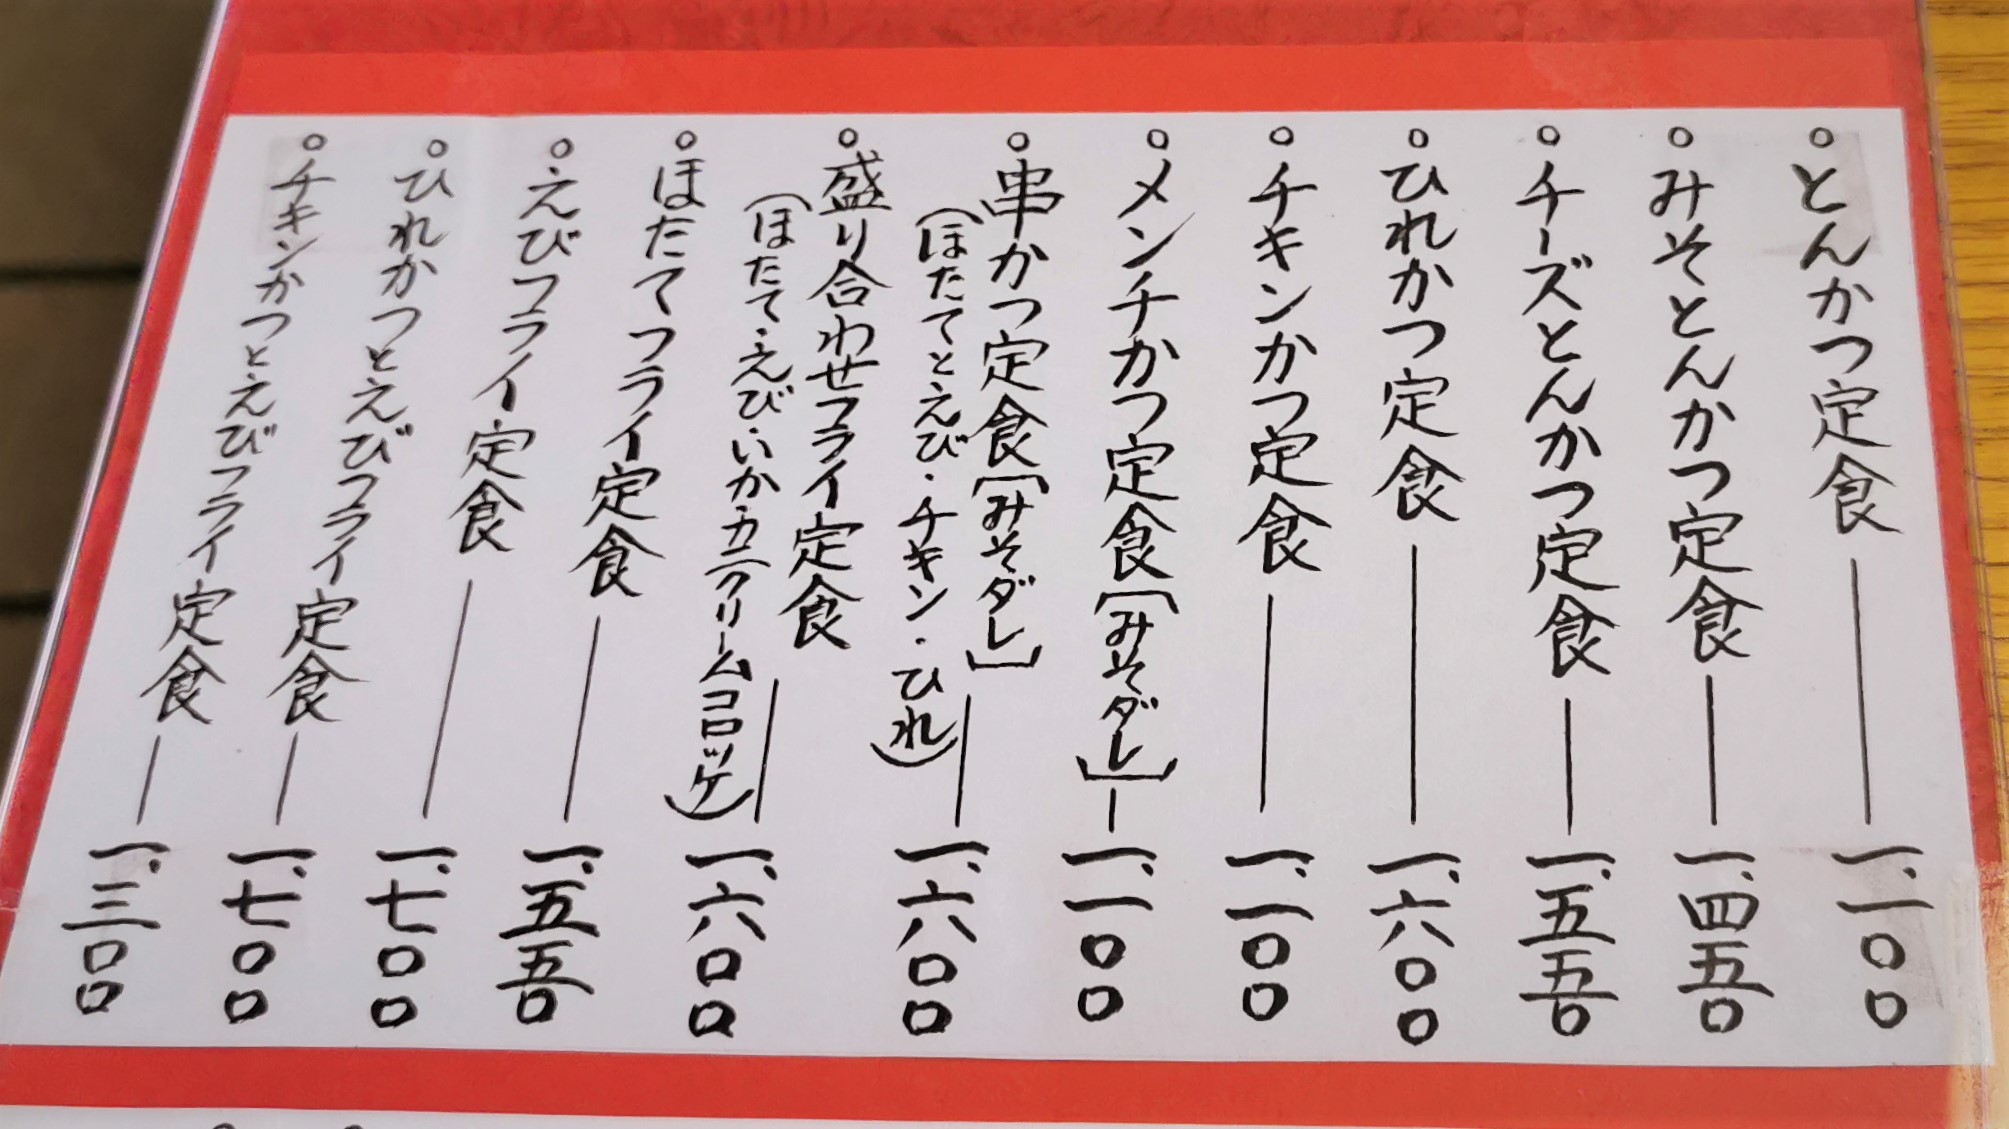 ○とんかつ定食 ― 一、一〇〇
○みそとんかつ定食 ― 一、四五〇
○チーズとんかつ定食 ― 一、五五〇
○ひれかつ定食 ― 一、六〇〇
○チキンかつ定食 ― 一、一〇〇
○メンチかつ定食[みそダレ] ― 一、一〇〇
○串かつ定食[みそダレ] ― 一、六〇〇
(ほたてとえび・チキン・ひれ)
○盛り合わせフライ定食 ― 一、六〇〇
(ほたて・えび・いか・カニクリームコロッケ)
○ほたてフライ定食 ― 一、五五〇
○えびフライ定食 ― 一、七〇〇
○ひれかつとえびフライ定食 ― 一、七〇〇
○チキンかつとえびフライ定食 ― 一、三〇〇